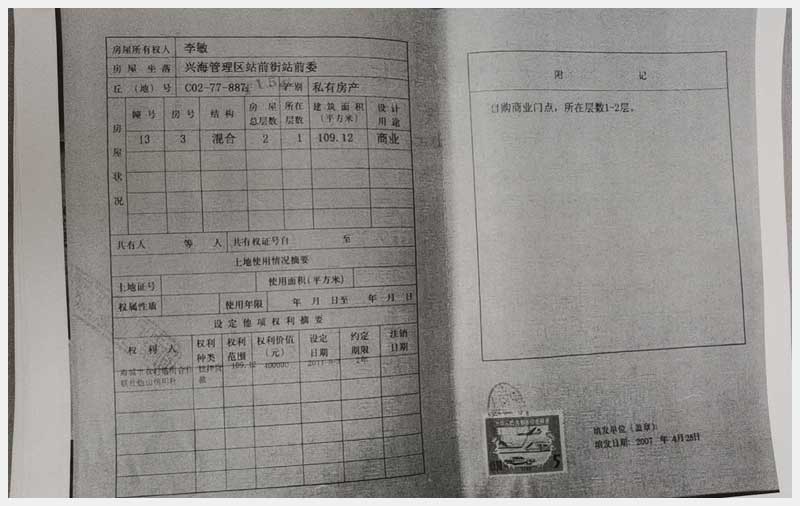 房屋所有权人 李敏
房屋坐落 兴海管理区站前街站前委
丘（地）号 C02-77-887 产别 私有房产
房屋状况
幢号 房号 结构 房屋总层数 所在层数 建筑面积（平方米） 设计用途
13 3 混合 2 1 109.12 商业
共有人 等 人 共有权证号自 至
土地使用情况摘要
土地证号 使用面积(平方米)
权属性质 使用年限 年 月 日至 年 月 日
设定他项权利摘要
权利人 权利种类 权利范围 权利价值（元） 设定日期 约定期限 注销日期
附 记
自购商业门点，所在层数1-2层。
5
填发单位（盖章）：
填发日期：2007 年 4月28日